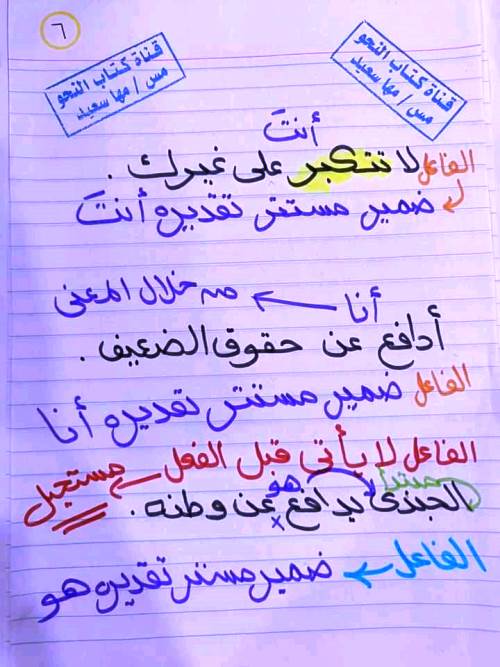 ٦
قناة كتاب النحو
مس / مها سعيد
قناة كتاب النحو
مس / مها سعيد
أنتَ
لا تتكبر على غيرك .
الفاعل ضمير مستتر تقديره أنتَ
أنا ← من خلال المعنى
أدافع عن حقوق الضعيف .
الفاعل ضمير مستتر تقديره أنا
الفاعل لا يأتى قبل الفعل ← مستحيل
مبتدأ هو
الجندى يدافع عن وطنه .
الفاعل ← ضمير مستتر تقديره هو